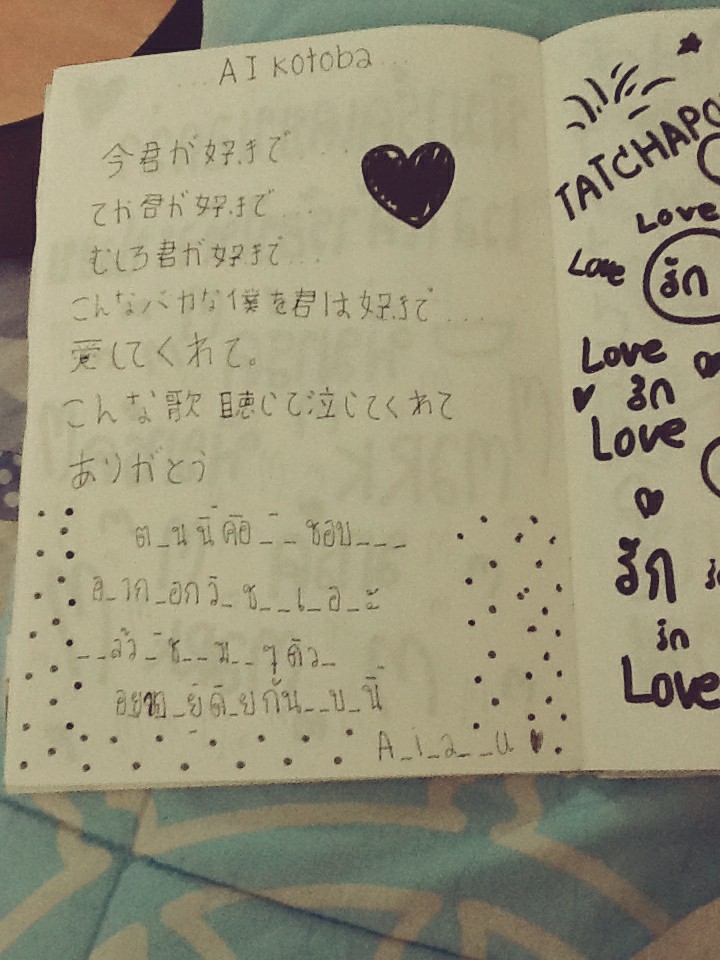 ... AI kotoba ...
今君が好きで...
てか君が好きで...
むしろ君が好きで...
こんなバカな僕を君は好きで...
愛してくれて。
こんな歌 聴じて泣じてくれて
ありがとう
ต_นนี้คือ_ _ชอบ_ _ _
อ_าก_อกว่_ ช_ _เ_อ_ะ
_ _ล้ว_ช_ _ม_ _ๆ ตัว_
A_i_a_ _u
TATCHAPO
Love
Love รัก
Love
รัก
Love
รัก
รัก
Love